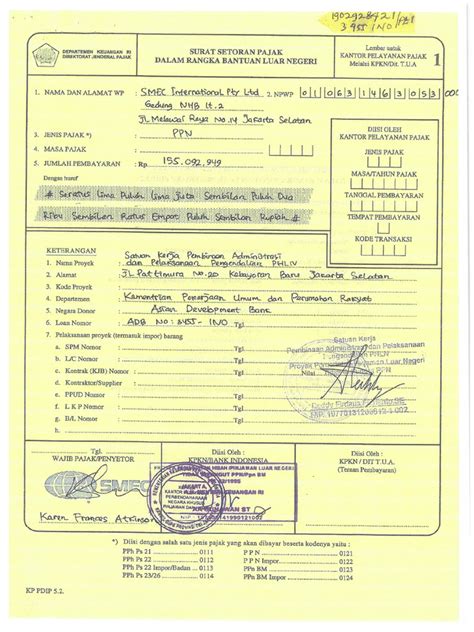 1902928421/
3455 INO/
DEPARTEMEN KEUANGAN RI
DIREKTORAT JENDERAL PAJAK
SURAT SETORAN PAJAK
DALAM RANGKA BANTUAN LUAR NEGERI
Lembar untuk
KANTOR PELAYANAN PAJAK
Melalui KPKN/Dit. T.U.A
1
1. NAMA DAN ALAMAT WP : SMEC International Pty Ltd 2. NPWP 010631463053000
Gedung NHB Lt.2
Jl. Melawai Raya No.14 Jakarta Selatan
3. JENIS PAJAK *) : PPN
4. MASA PAJAK :
5. JUMLAH PEMBAYARAN : Rp 155.092.949
Dengan huruf
# Seratus Lima Puluh Lima Juta Sembilan Puluh Dua
Ribu Sembilan Ratus Empat Puluh Sembilan Rupiah #
DIISI OLEH
KANTOR PELAYANAN PAJAK
JENIS PAJAK
MASA/TAHUN PAJAK
TANGGAL PEMBAYARAN
TEMPAT PEMBAYARAN
KODE TRANSAKSI
KETERANGAN
1. Nama Proyek : Satuan Kerja Pembinaan Administrasi
dan Pelaksanaan Pengendalian PHLN
2. Alamat : Jl Pattimura No.20 Kebayoran Baru Jakarta Selatan
3. Kode Proyek :
4. Departemen : Kementrian Pekerjaan Umum dan Perumahan Rakyat
5. Negara Donor : Asian Development Bank
6. Loan Nomor : ADB No : 3455-INO Tgl
7. Pelaksanaan proyek (termasuk impor) barang
a. SPM Nomor : Tgl.
b. L/C Nomor : Tgl.
c. Kontrak (KJB) Nomor : Tgl.
d. Kontraktor/Supplier :
e. PPUD Nomor : Tgl.
f. L K P Nomor : Tgl.
g. B/L Nomor : Tgl.
h.
Satuan Kerja
Pembinaan Administrasi dan Pelaksanaan
Pengendalian PHLN
Tgl.
WAJIB PAJAK/PENYETOR
SMEC
Karen Frances Atkinson
Diisi Oleh :
KPKN/BANK INDONESIA
Diisi Oleh :
KPKN / DIT T.U.A
(Teman Pembayaran)
*) Diisi dengan salah satu jenis pajak yang akan dibayar beserta kodenya yaitu :
PPh Ps 21 ............ 0111
PPh Ps 22 ............ 0112
PPh Ps 22 Impor/Badan ... 0113
PPh Ps 23/26 ............ 0114
P P N ............ 0121
P P N Impor............ 0122
PPn BM ............ 0123
PPn BM Impor ............ 0124
KP PDIP 5.2.